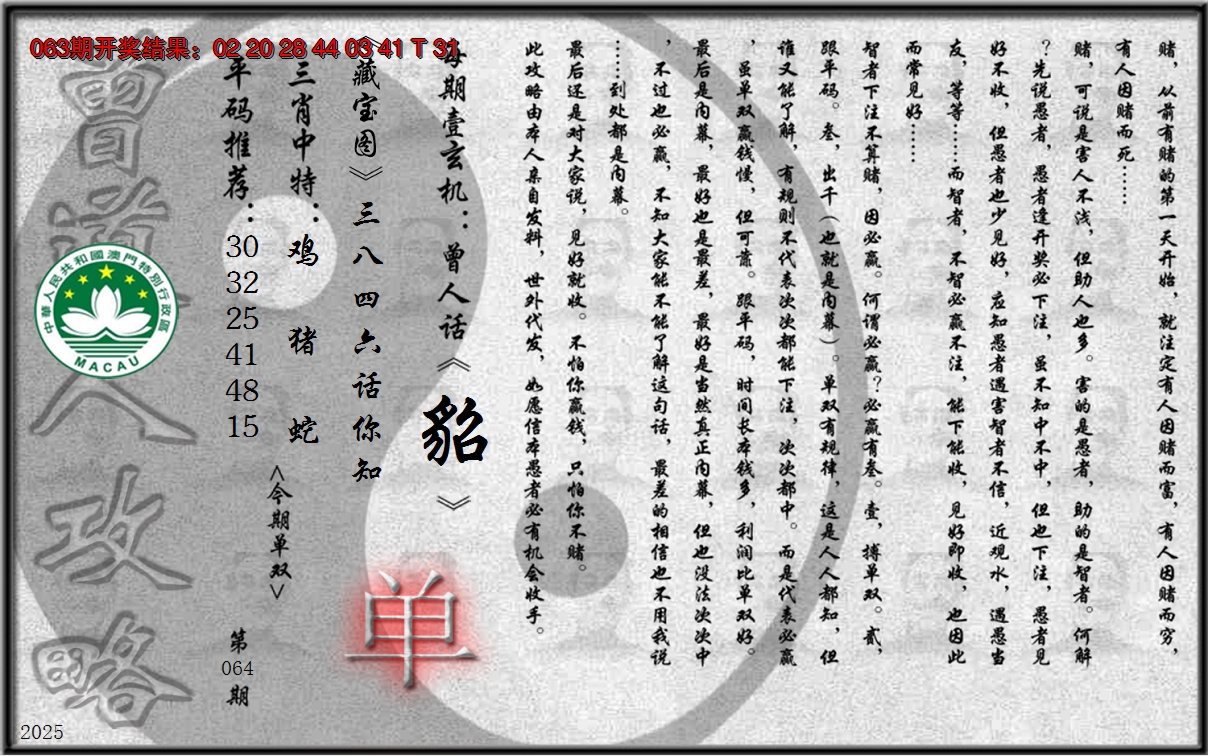 063期开奖结果：02 20 28 44 03 41 T 31
赌，从前有赌的第一天开始，就注定有人因赌而富，有人因赌而穷，
有人因赌而死……
赌，可说是害人不浅，但助人也多。害的是愚者，助的是智者。何解
？先说愚者，愚者逢开奖必下注，虽不知中不中，但也下注，愚者见
好不收，但愚者也少见好，应知愚者遇害智者不信，近观水，遇愚当
友，等等……而智者，不智必赢不注，能下能收，见好即收，也因此
而常见好……
智者下注不算赌，因必赢。何谓必赢？必赢有叁。壹，搏单双。贰，
跟平码。叁，出千（也就是内幕）。单双有规律，这是人人都知，但
谁又能了解，有规则不代表次次都能下注，次次都中。而是代表必赢
，虽单双赢钱慢，但可靠。跟平码，时间长本钱多，利润比单双好。
最后是内幕，最好也是最差，最好是当然真正内幕，但也没法次次中
，不过也必赢，不知大家能不能了解这句话，最差的相信也不用我说
……到处都是内幕。
最后还是对大家说，见好就收。不怕你赢钱，只怕你不赌。
此攻略由本人亲自发料，世外代发，如愿信本愚者必有机会收手。
每期壹玄机：曾人话《貂》
《藏宝图》三八四六话你知
单
三肖中特：鸡 猪 蛇
<今期单双>
平码推荐：30 32 25 41 48 15
第064期
曾道人攻略
中華人民共和國澳門特別行政區
MACAU
2025